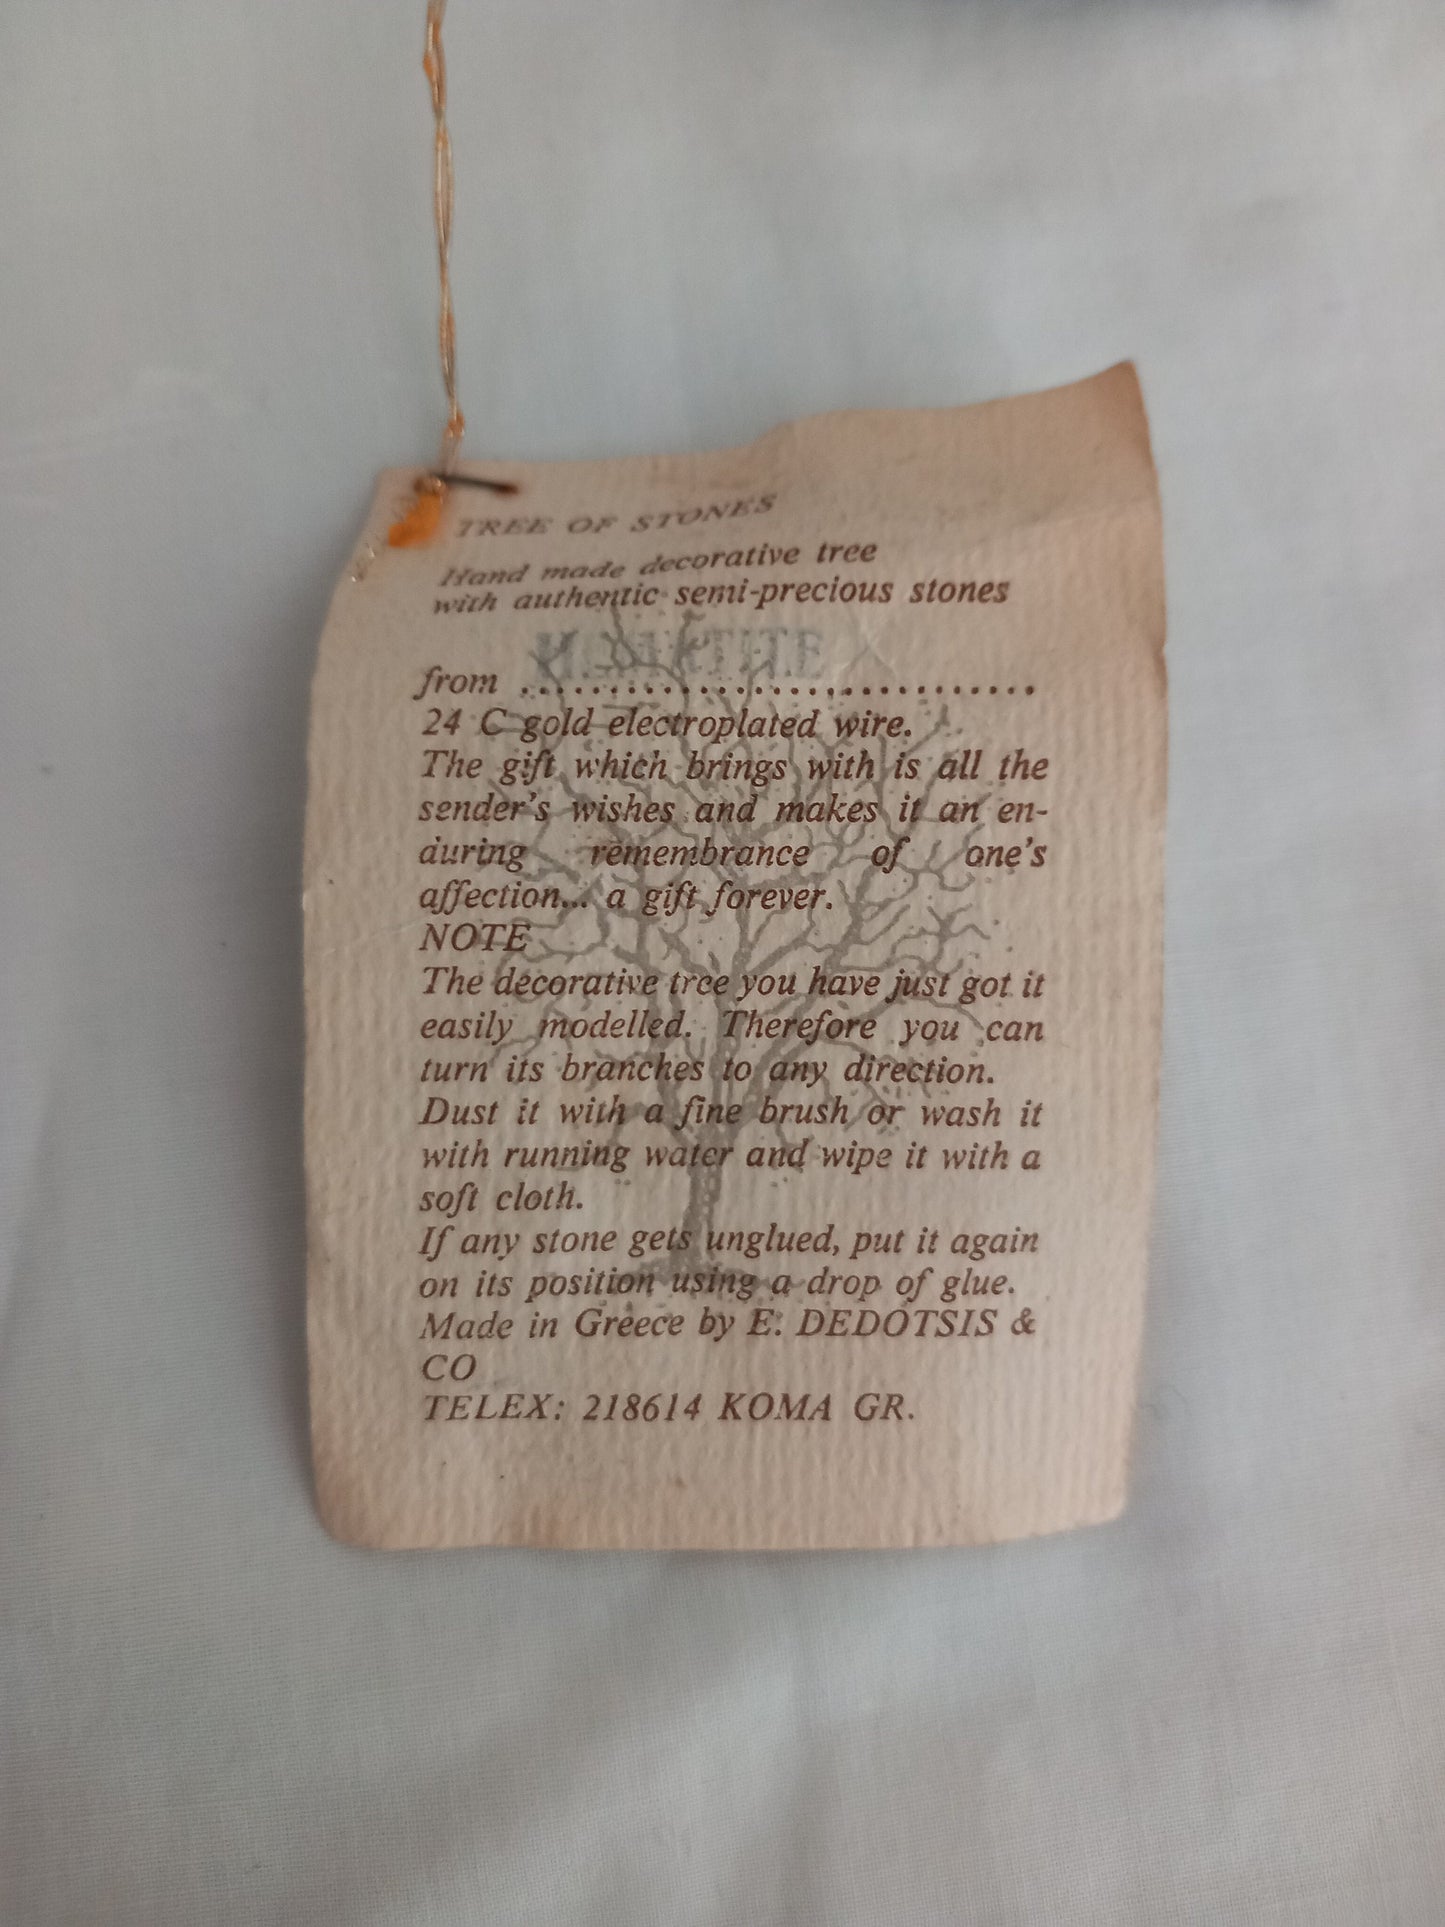 TREE OF STONES
Hand made decorative tree
with authentic semi-precious stones
from ..............................
24 C gold electroplated wire.
The gift which brings with is all the
sender's wishes and makes it an en-
during remembrance of one's
affection... a gift forever.
NOTE
The decorative tree you have just got it
easily modelled. Therefore you can
turn its branches to any direction.
Dust it with a fine brush or wash it
with running water and wipe it with a
soft cloth.
If any stone gets unglued, put it again
on its position using a drop of glue.
Made in Greece by E. DEDOTSIS &
CO
TELEX: 218614 KOMA GR.